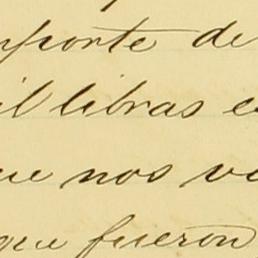 mporte de
il libras e
ue nos ve
que fueron